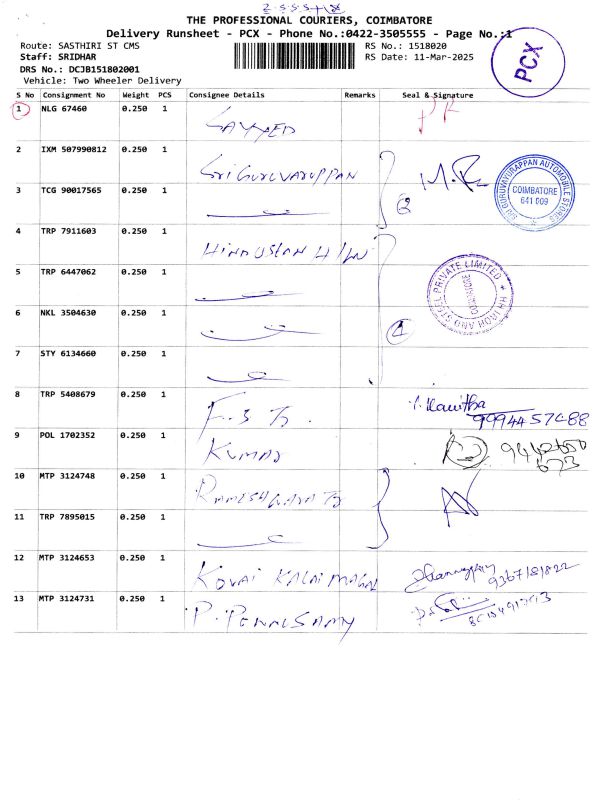 THE PROFESSIONAL COURIERS, COIMBATORE
Delivery Runsheet - PCX - Phone No.:0422-3505555 - Page No.:1
Route: SASTHIRI ST CMS
RS No.: 1518020
Staff: SRIDHAR
RS Date: 11-Mar-2025
DRS No.: DCJB151802001
Vehicle: Two Wheeler Delivery
PCX
S No Consignment No Weight PCS Consignee Details Remarks Seal & Signature
1 NLG 67460 0.250 1
2 IXM 507990812 0.250 1 Sri Guruvaruppan
SRI GURUVAYURAPPAN AUTOMOBILE STORES
COIMBATORE
641 009
3 TCG 90017565 0.250 1
4 TRP 7911603 0.250 1 HINDUSTAN
HH IRON AND STEEL PRIVATE LIMITED
COIMBATORE
5 TRP 6447062 0.250 1
6 NKL 3504630 0.250 1
7 STY 6134660 0.250 1
8 TRP 5408679 0.250 1
9 POL 1702352 0.250 1 KUMAR
10 MTP 3124748 0.250 1
11 TRP 7895015 0.250 1
12 MTP 3124653 0.250 1 KOVAI KALAIMAGAL
13 MTP 3124731 0.250 1 P. PONNUSAMY